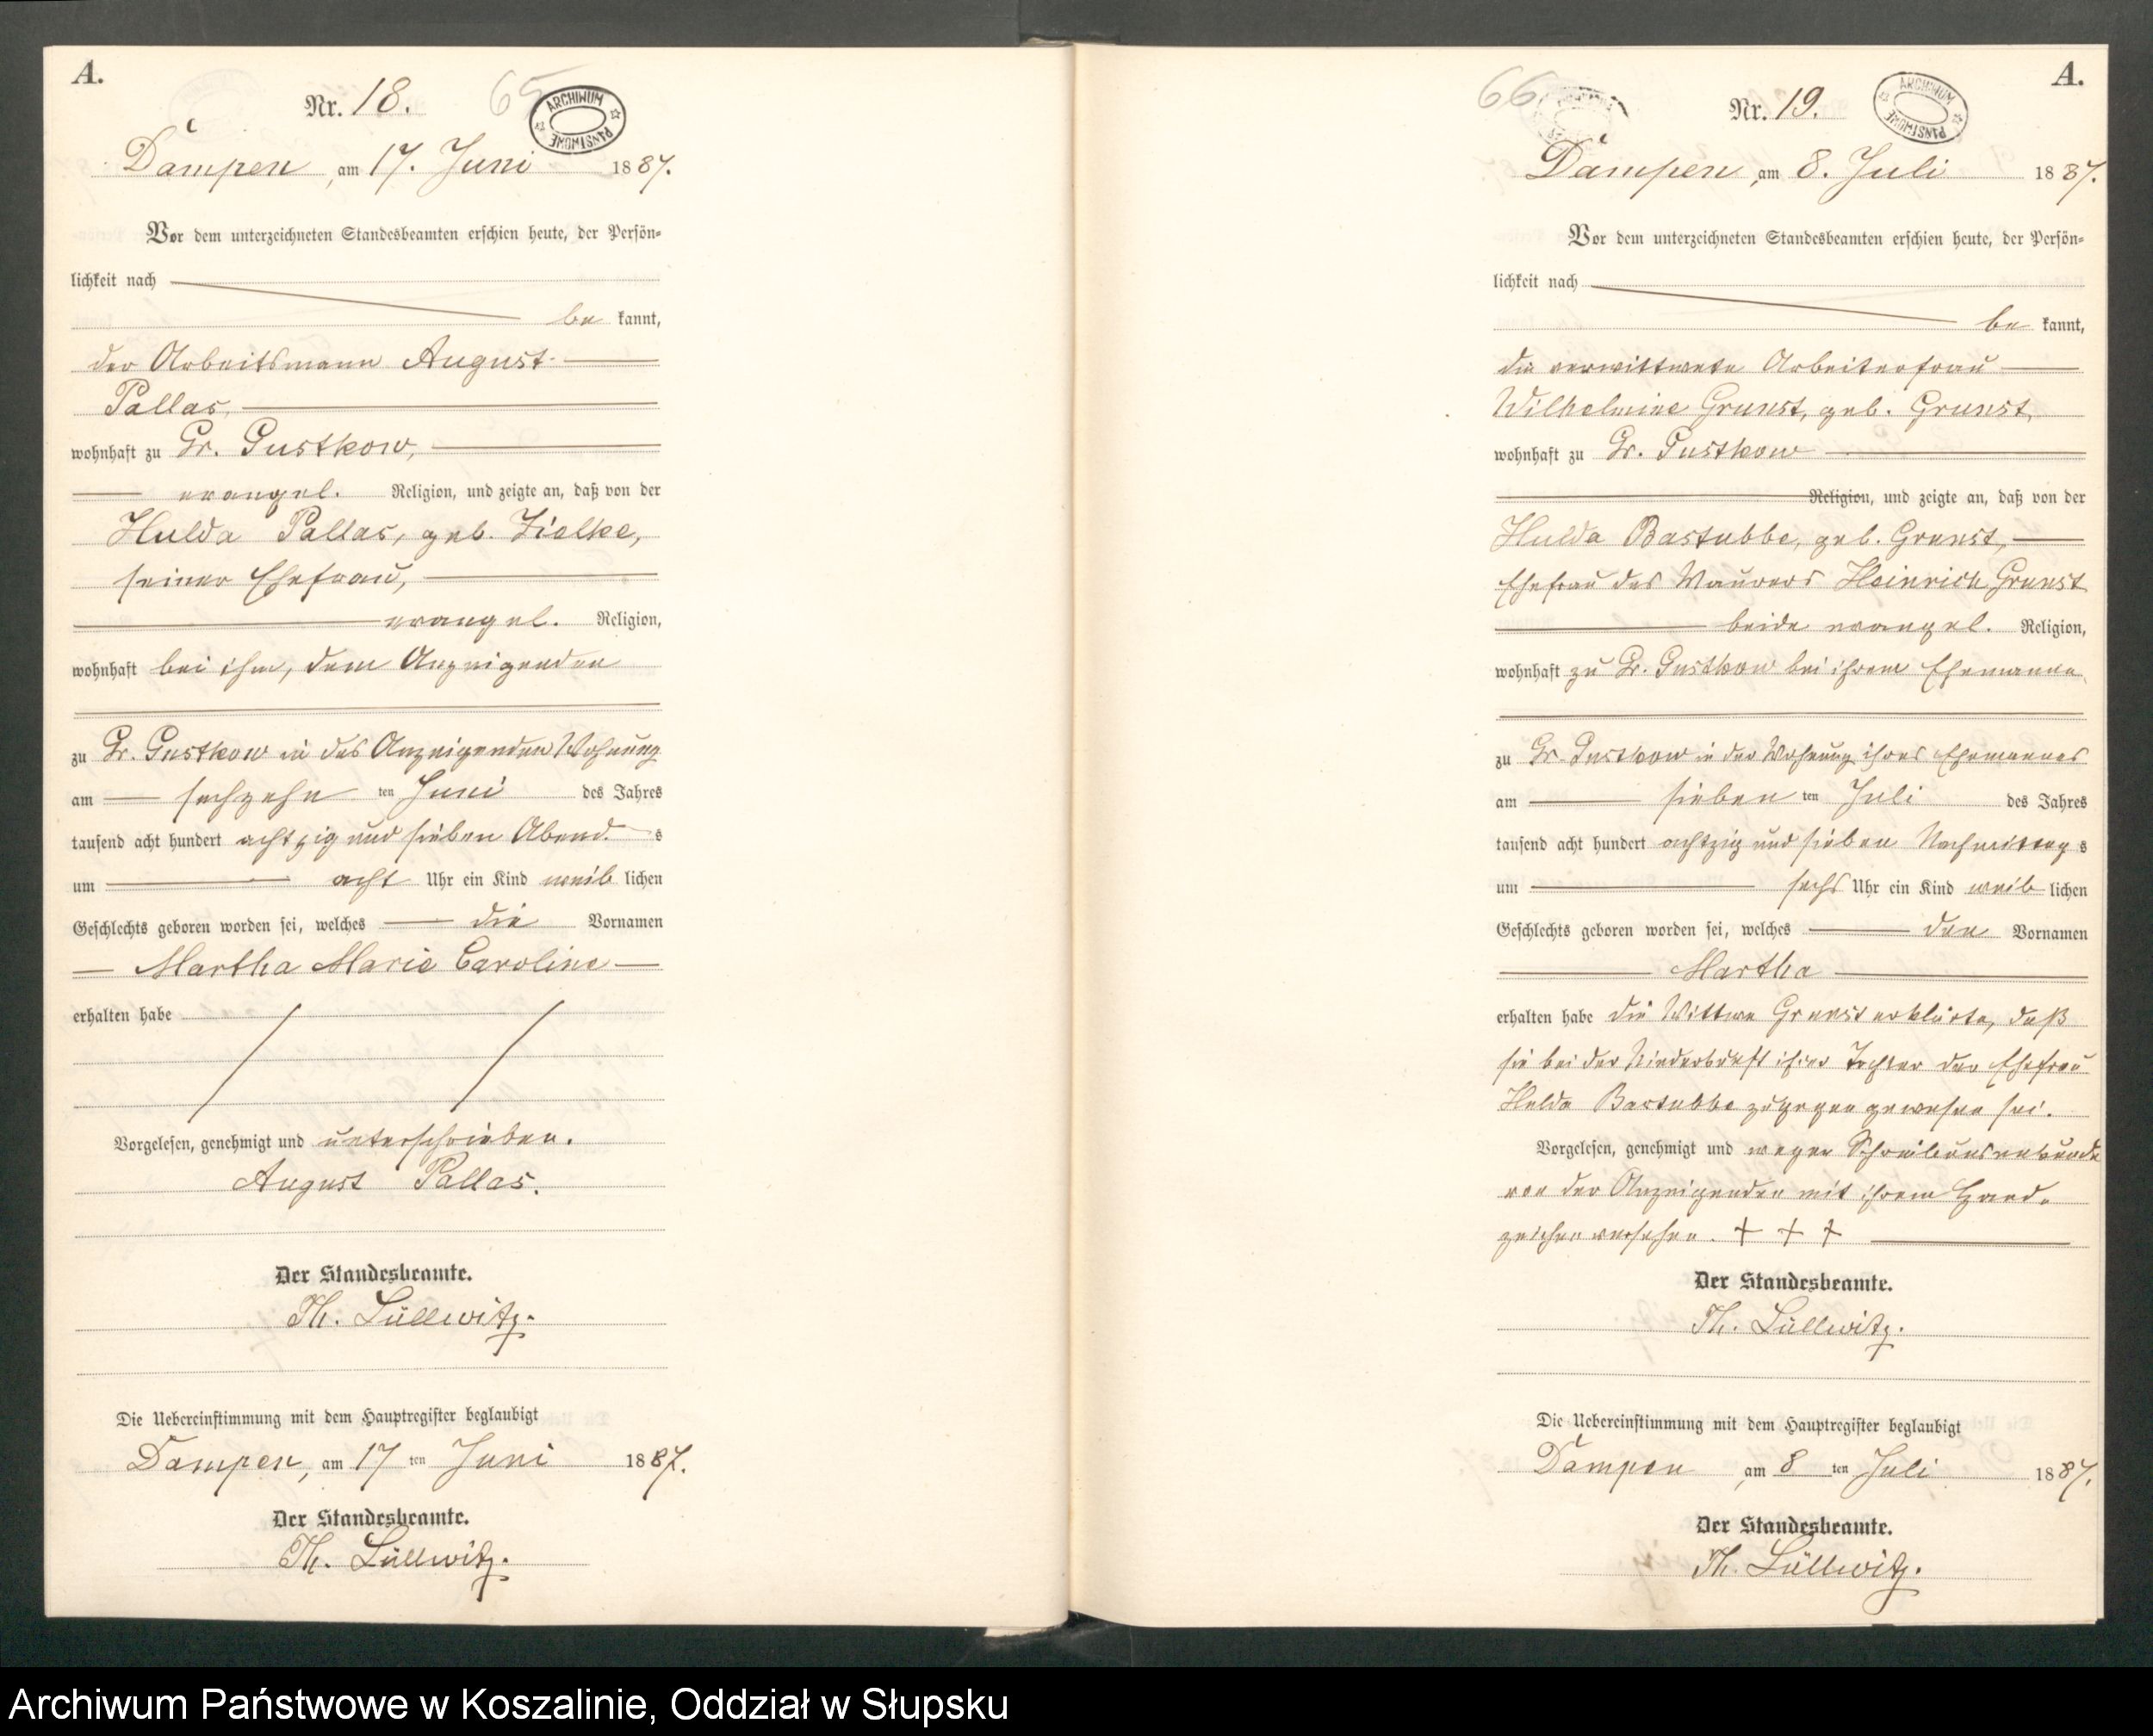 A.
Nr. 18.
65
ARCHIWUM PAŃSTWOWE
Dampen, am 17. Juni 1887.
Vor dem unterzeichneten Standesbeamten erschien heute, der Persön-
lichkeit nach
be kannt,
der Arbeitsmann August
Pallas,
wohnhaft zu Gr. Gustkow,
evangel. Religion, und zeigte an, daß von der
Hulda Pallas, geb. Zielke,
seiner Ehefrau,
evangel. Religion,
wohnhaft bei ihm, dem Anzeigenden
zu Gr. Gustkow in des Anzeigenden Wohnung
am sechzehn ten Juni des Jahres
tausend acht hundert achtzig und sieben Abend s
um acht Uhr ein Kind weib lichen
Geschlechts geboren worden sei, welches die Vornamen
Martha Marie Caroline
erhalten habe
Vorgelesen, genehmigt und unterschrieben.
August Pallas.
Der Standesbeamte.
Th. Lüllwitz.
Die Uebereinstimmung mit dem Hauptregister beglaubigt
Dampen, am 17 ten Juni 1887.
Der Standesbeamte.
Th. Lüllwitz.
66
A.
Nr. 19.
ARCHIWUM PAŃSTWOWE
Dampen, am 8. Juli 1887.
Vor dem unterzeichneten Standesbeamten erschien heute, der Persön-
lichkeit nach
be kannt,
die verwittwete Arbeiterfrau
Wilhelmine Grunst, geb. Grunst,
wohnhaft zu Gr. Gustkow
Religion, und zeigte an, daß von der
Hulda Bastubbe, geb. Grunst,
Ehefrau des Maurers Heinrich Grunst
beide evangel. Religion,
wohnhaft zu Gr. Gustkow bei ihrem Ehemanne
zu Gr. Gustkow in der Wohnung ihres Ehemannes
am sieben ten Juli des Jahres
tausend acht hundert achtzig und sieben Nachmittag s
um sechs Uhr ein Kind weib lichen
Geschlechts geboren worden sei, welches den Vornamen
Martha
erhalten habe die Wittwe Grunst erklärte, daß
sie bei der Niederkunft ihrer Tochter der Ehefrau
Hulda Bastubbe zugegen gewesen sei.
Vorgelesen, genehmigt und wegen Schreibensunkunde
von der Anzeigenden mit ihrem Hand-
zeichen versehen. + + +
Der Standesbeamte.
Th. Lüllwitz.
Die Uebereinstimmung mit dem Hauptregister beglaubigt
Dampen am 8 ten Juli 1887.
Der Standesbeamte.
Th. Lüllwitz.
Archiwum Państwowe w Koszalinie, Oddział w Słupsku